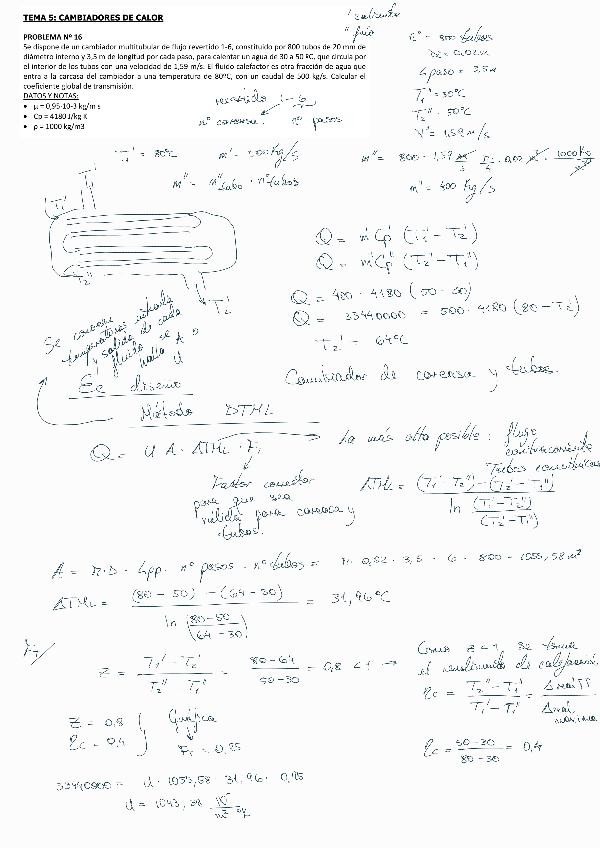 TEMA 5: CAMBIADORES DE CALOR
' caliente
'' frío
PROBLEMA Nº 16
Se dispone de un cambiador multitubular de flujo revertido 1-6, constituido por 800 tubos de 20 mm de
diámetro interno y 3,5 m de longitud por cada paso, para calentar un agua de 30 a 50 ºC, que circula por
el interior de los tubos con una velocidad de 1,59 m/s. El fluido calefactor es otra fracción de agua que
entra a la carcasa del cambiador a una temperatura de 80ºC, con un caudal de 500 kg/s. Calcular el
coeficiente global de transmisión.
DATOS Y NOTAS:
• μ = 0,95·10-3 kg/m s
• Cp = 4180 J/kg K
• ρ = 1000 kg/m3
nº = 800 tubos
D = 0,02 m
L paso = 3,5 m
T1'' = 30ºC
T2'' = 50ºC
V'' = 1,59 m/s
revertido 1-6
nº carcasa nº pasos
T1' = 80ºC m' = 500 Kg/s
m'' = m''tubo · nº tubos
m'' = 800 · 1,59 m/s · π/4 · 0,02² m² · 1000 Kg/m³
m'' = 400 Kg/s
T1'
T1''
T2''
T2'
Q = m' Cp' (T1' - T2')
Q = m'' Cp'' (T2'' - T1'')
Q = 400 · 4180 (50 - 30)
Q = 33440000 = 500 · 4180 (80 - T2')
T2' = 64ºC
Se conocen
temperaturas entrada
y salida de cada
fluido se
halla A o
U
Cambiador de carcasa y tubos.
Ec diseño
Método DTML
Q = U A · ΔTML · FT
La más alta posible: flujo
contracorriente
Tubos concéntricos
Factor corrector
para que sea
válida para carcasa y
tubos.
ΔTML = (T1' - T2'') - (T2' - T1'') / ln (T1' - T2'') / (T2' - T1'')
A = π · D · Lpp · nº pasos · nº tubos = π · 0,02 · 3,5 · 6 · 800 = 1055,58 m²
ΔTML = (80 - 50) - (64 - 30) / ln (80 - 50 / 64 - 30) = 31,96 ºC
FT/
Z = T1' - T2' / T2'' - T1'' = 80 - 64 / 50 - 30 = 0,8 < 1 →
Como Z < 1, se toma
el rendimiento de calefacción.
ηc = T2'' - T1'' / T1' - T1''
ηc = 50 - 30 / 80 - 30 = 0,4
Z = 0,8
ηc = 0,4
Gráfica
FT = 0,95
33440000 = U · 1055,58 · 31,96 · 0,95